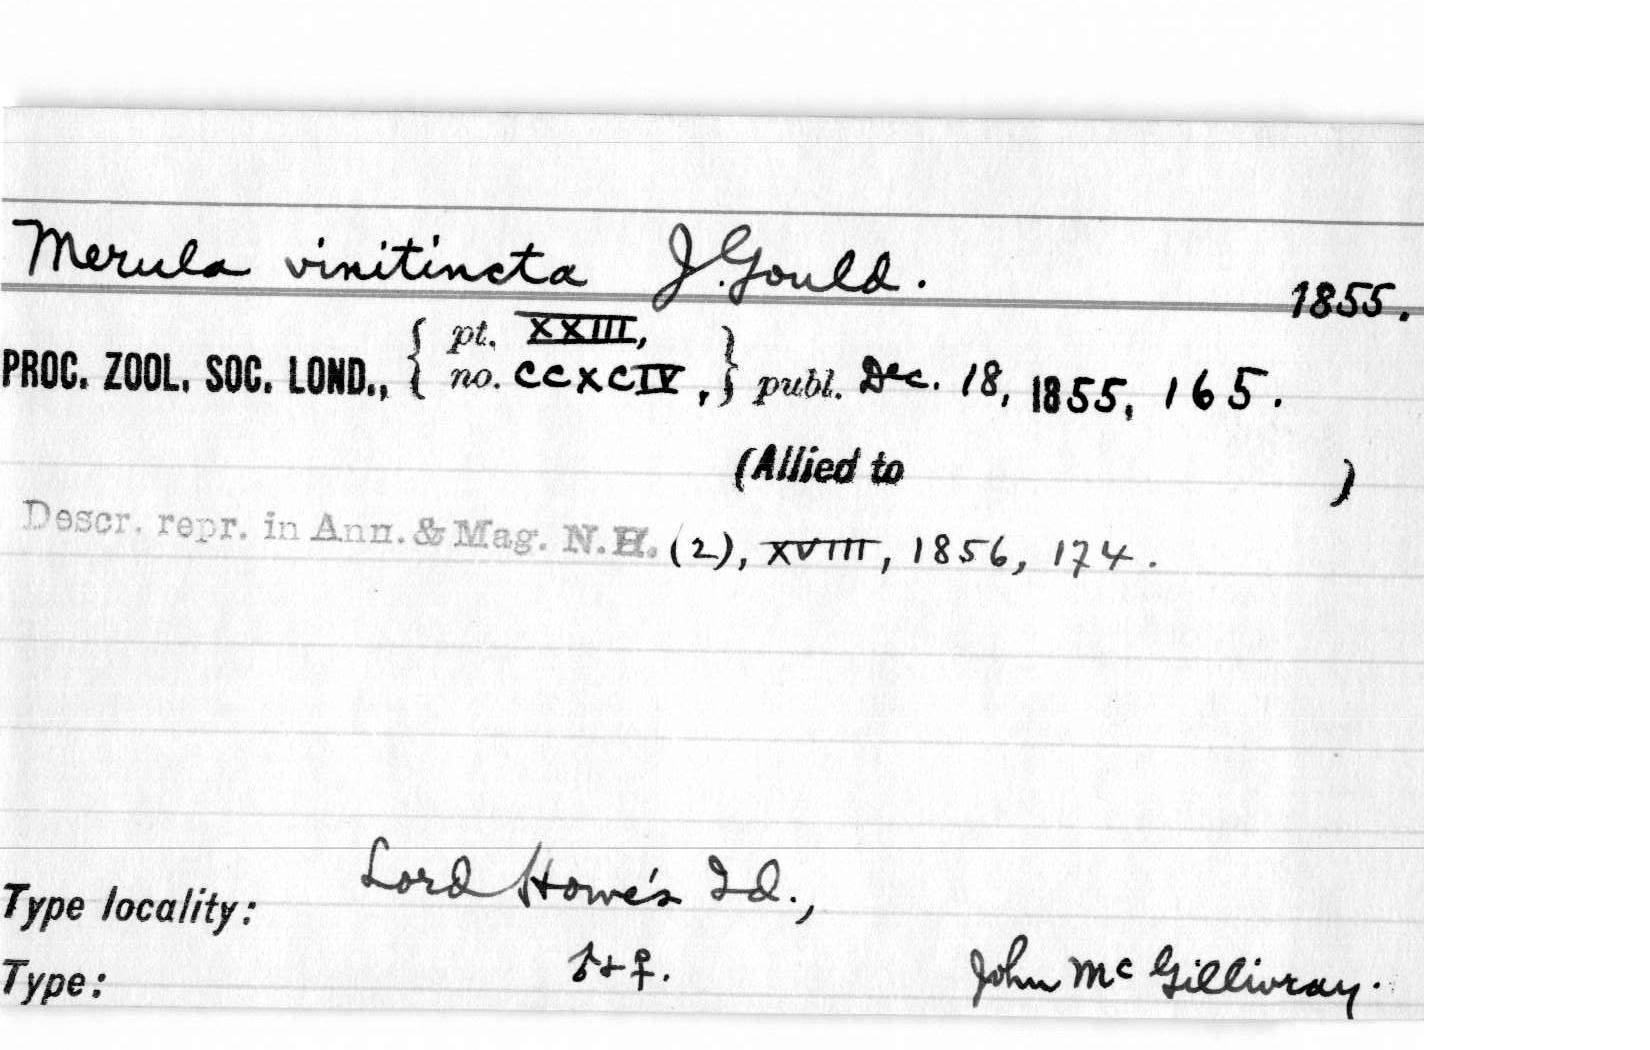 Merula vinitincta J. Gould. 1855.
PROC. ZOOL. SOC. LOND., { pt. XXIII, no. CCXCIV, } publ. Dec. 18, 1855, 165.
(Allied to )
Descr. repr. in Ann. & Mag. N.H. (2), XVIII, 1856, 174.
Type locality: Lord Howe's Id.,
Type: ♂ + ♀. John McGillivray.